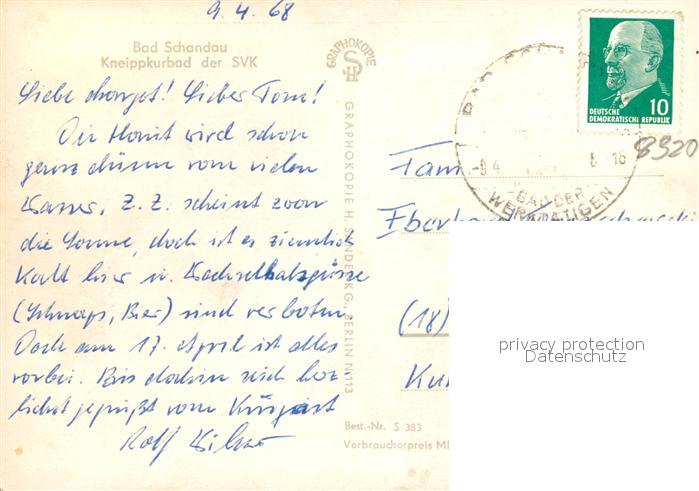 9.4.68
Bad Schandau
Kneippkurbad der SVK
GRAPHOKOPIE
GRAPHOKOPIE H. SANDER KG. BERLIN N 113
Liebe Margot! Lieber Tom!
Die Haut wird schon
ganz dünn vom vielen
Wasser. Z.Z. scheint zwar
die Sonne, doch ist es ziemlich
Kalt hier u. Wechselhalsgüsse
(Schnaps, Bier) sind verboten.
Doch am 17. April ist alles
vorbei. Bis dahin seid herz-
lichst gegrüßt vom Kurgast
Rolf
DEUTSCHE
DEMOKRATISCHE REPUBLIK
10
8920
-9.4
8-16
BAD DER
WERKTÄTIGEN
Fam
Eberhard
(18)
privacy protection
Datenschutz
Best.-Nr. S 383
Verbraucherpreis